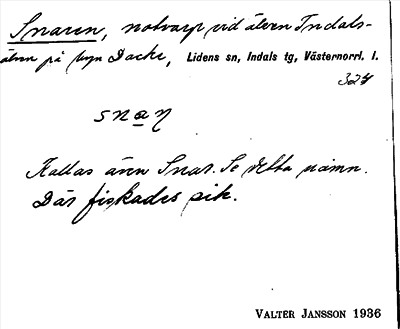 Snaren, notvarp vid älven Indals-
älven på byn Backe, Lidens sn, Indals tg, Västernorrl. l.
324
snaŋ
Kallas även Snar. Se detta namn.
Där fiskades sik.
VALTER JANSSON 1936